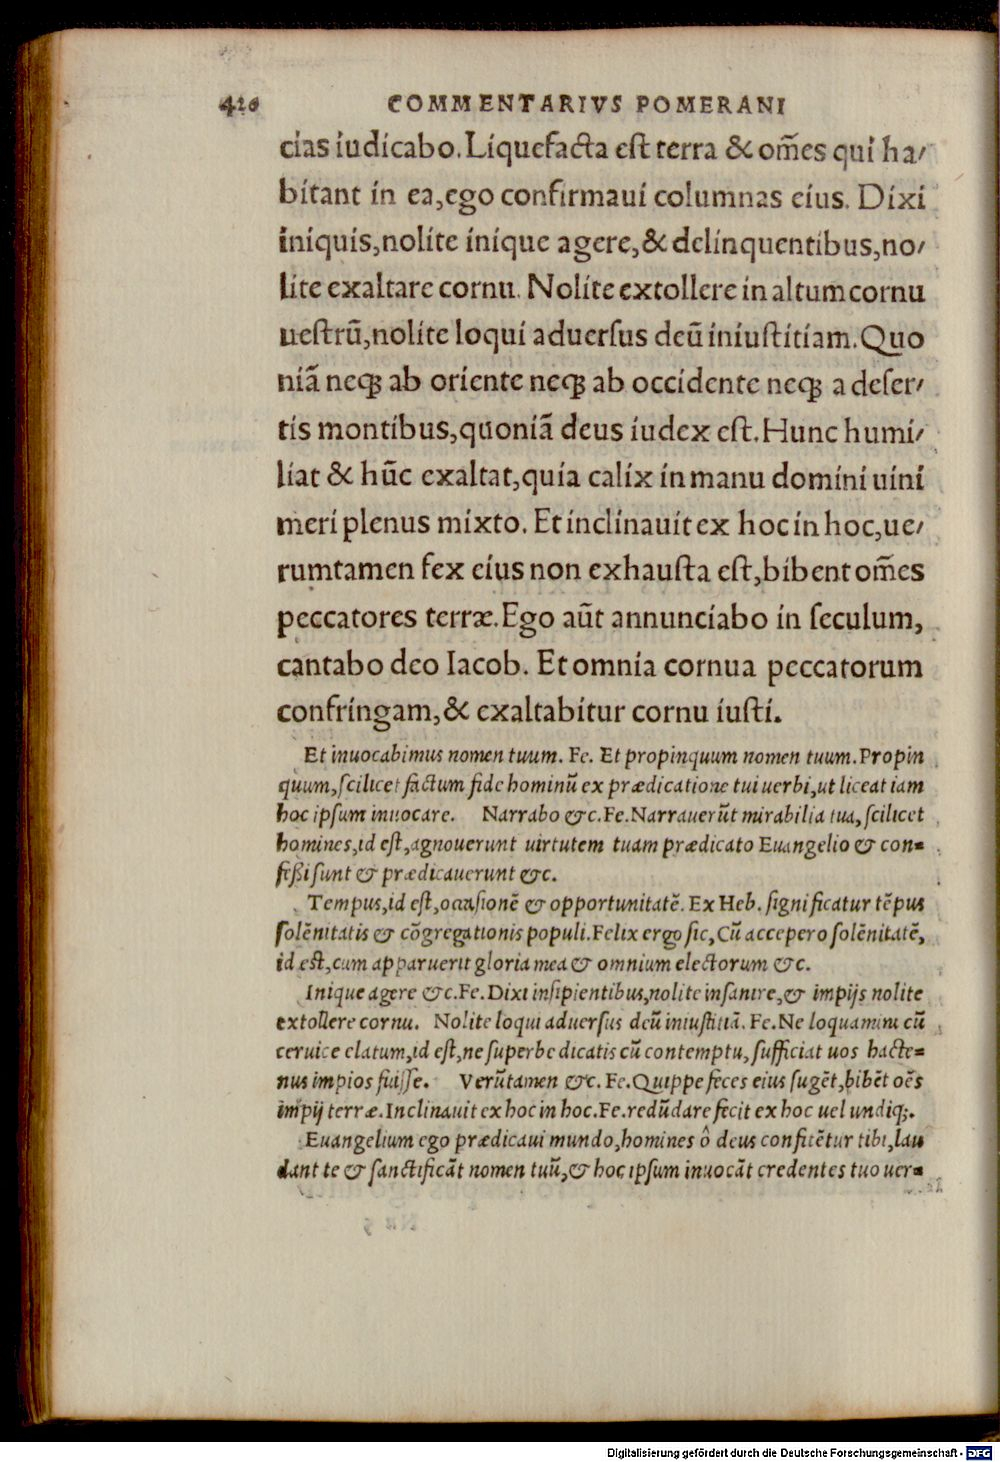 420 COMMENTARIVS POMERANI
cias iudicabo. Liquefacta est terra & om̃es qui ha/
bitant in ea, ego confirmaui columnas eius. Dixi
iniquis, nolite inique agere, & delinquentibus, no/
lite exaltare cornu. Nolite extollere in altum cornu
uestrũ, nolite loqui aduersus deũ iniustitiam. Quo
niã neqꝫ ab oriente neqꝫ ab occidente neqꝫ a deser/
tis montibus, quoniã deus iudex est. Hunc humi/
liat & hũc exaltat, quia calix in manu domini uini
meri plenus mixto. Et inclinauit ex hoc in hoc, ue/
rumtamen fex eius non exhausta est, bibent om̃es
peccatores terræ. Ego aũt annunciabo in seculum,
cantabo deo Iacob. Et omnia cornua peccatorum
confringam, & exaltabitur cornu iusti.
Et inuocabimus nomen tuum. Fe. Et propinquum nomen tuum. Propin
quum, scilicet factum fide hominũ ex prædicatione tui uerbi, ut liceat iam
hoc ipsum inuocare. Narrabo &c. Fe. Narrauerũt mirabilia tua, scilicet
homines, id est, agnouerunt uirtutem tuam prædicato Euangelio & con=
feßi sunt & prædicauerunt &c.
Tempus, id est, occasionẽ & opportunitatẽ. Ex Heb. significatur tẽpus
solẽnitatis & cõgregationis populi. Felix ergo sic, Cũ accepero solẽnitatẽ,
id est, cum apparuerit gloria mea & omnium electorum &c.
Inique agere &c. Fe. Dixi insipientibus, nolite insanire, & impijs nolite
extollere cornu. Nolite loqui aduersus deũ iniustitiã. Fe. Ne loquamini cũ
ceruice elatum, id est, ne superbe dicatis cũ contemptu, sufficiat uos hacte=
nus impios fuisse. Verũtamen &c. Fe. Quippe feces eius sugẽt, bibẽt oẽs
impij terræ. Inclinauit ex hoc in hoc. Fe. redũdare fecit ex hoc uel undiqꝫ.
Euangelium ego prædicaui mundo, homines ô deus confitẽtur tibi, lau
dant te & sanctificãt nomen tuũ, & hoc ipsum inuocãt credentes tuo uer=
Digitalisierung gefördert durch die Deutsche Forschungsgemeinschaft - DFG